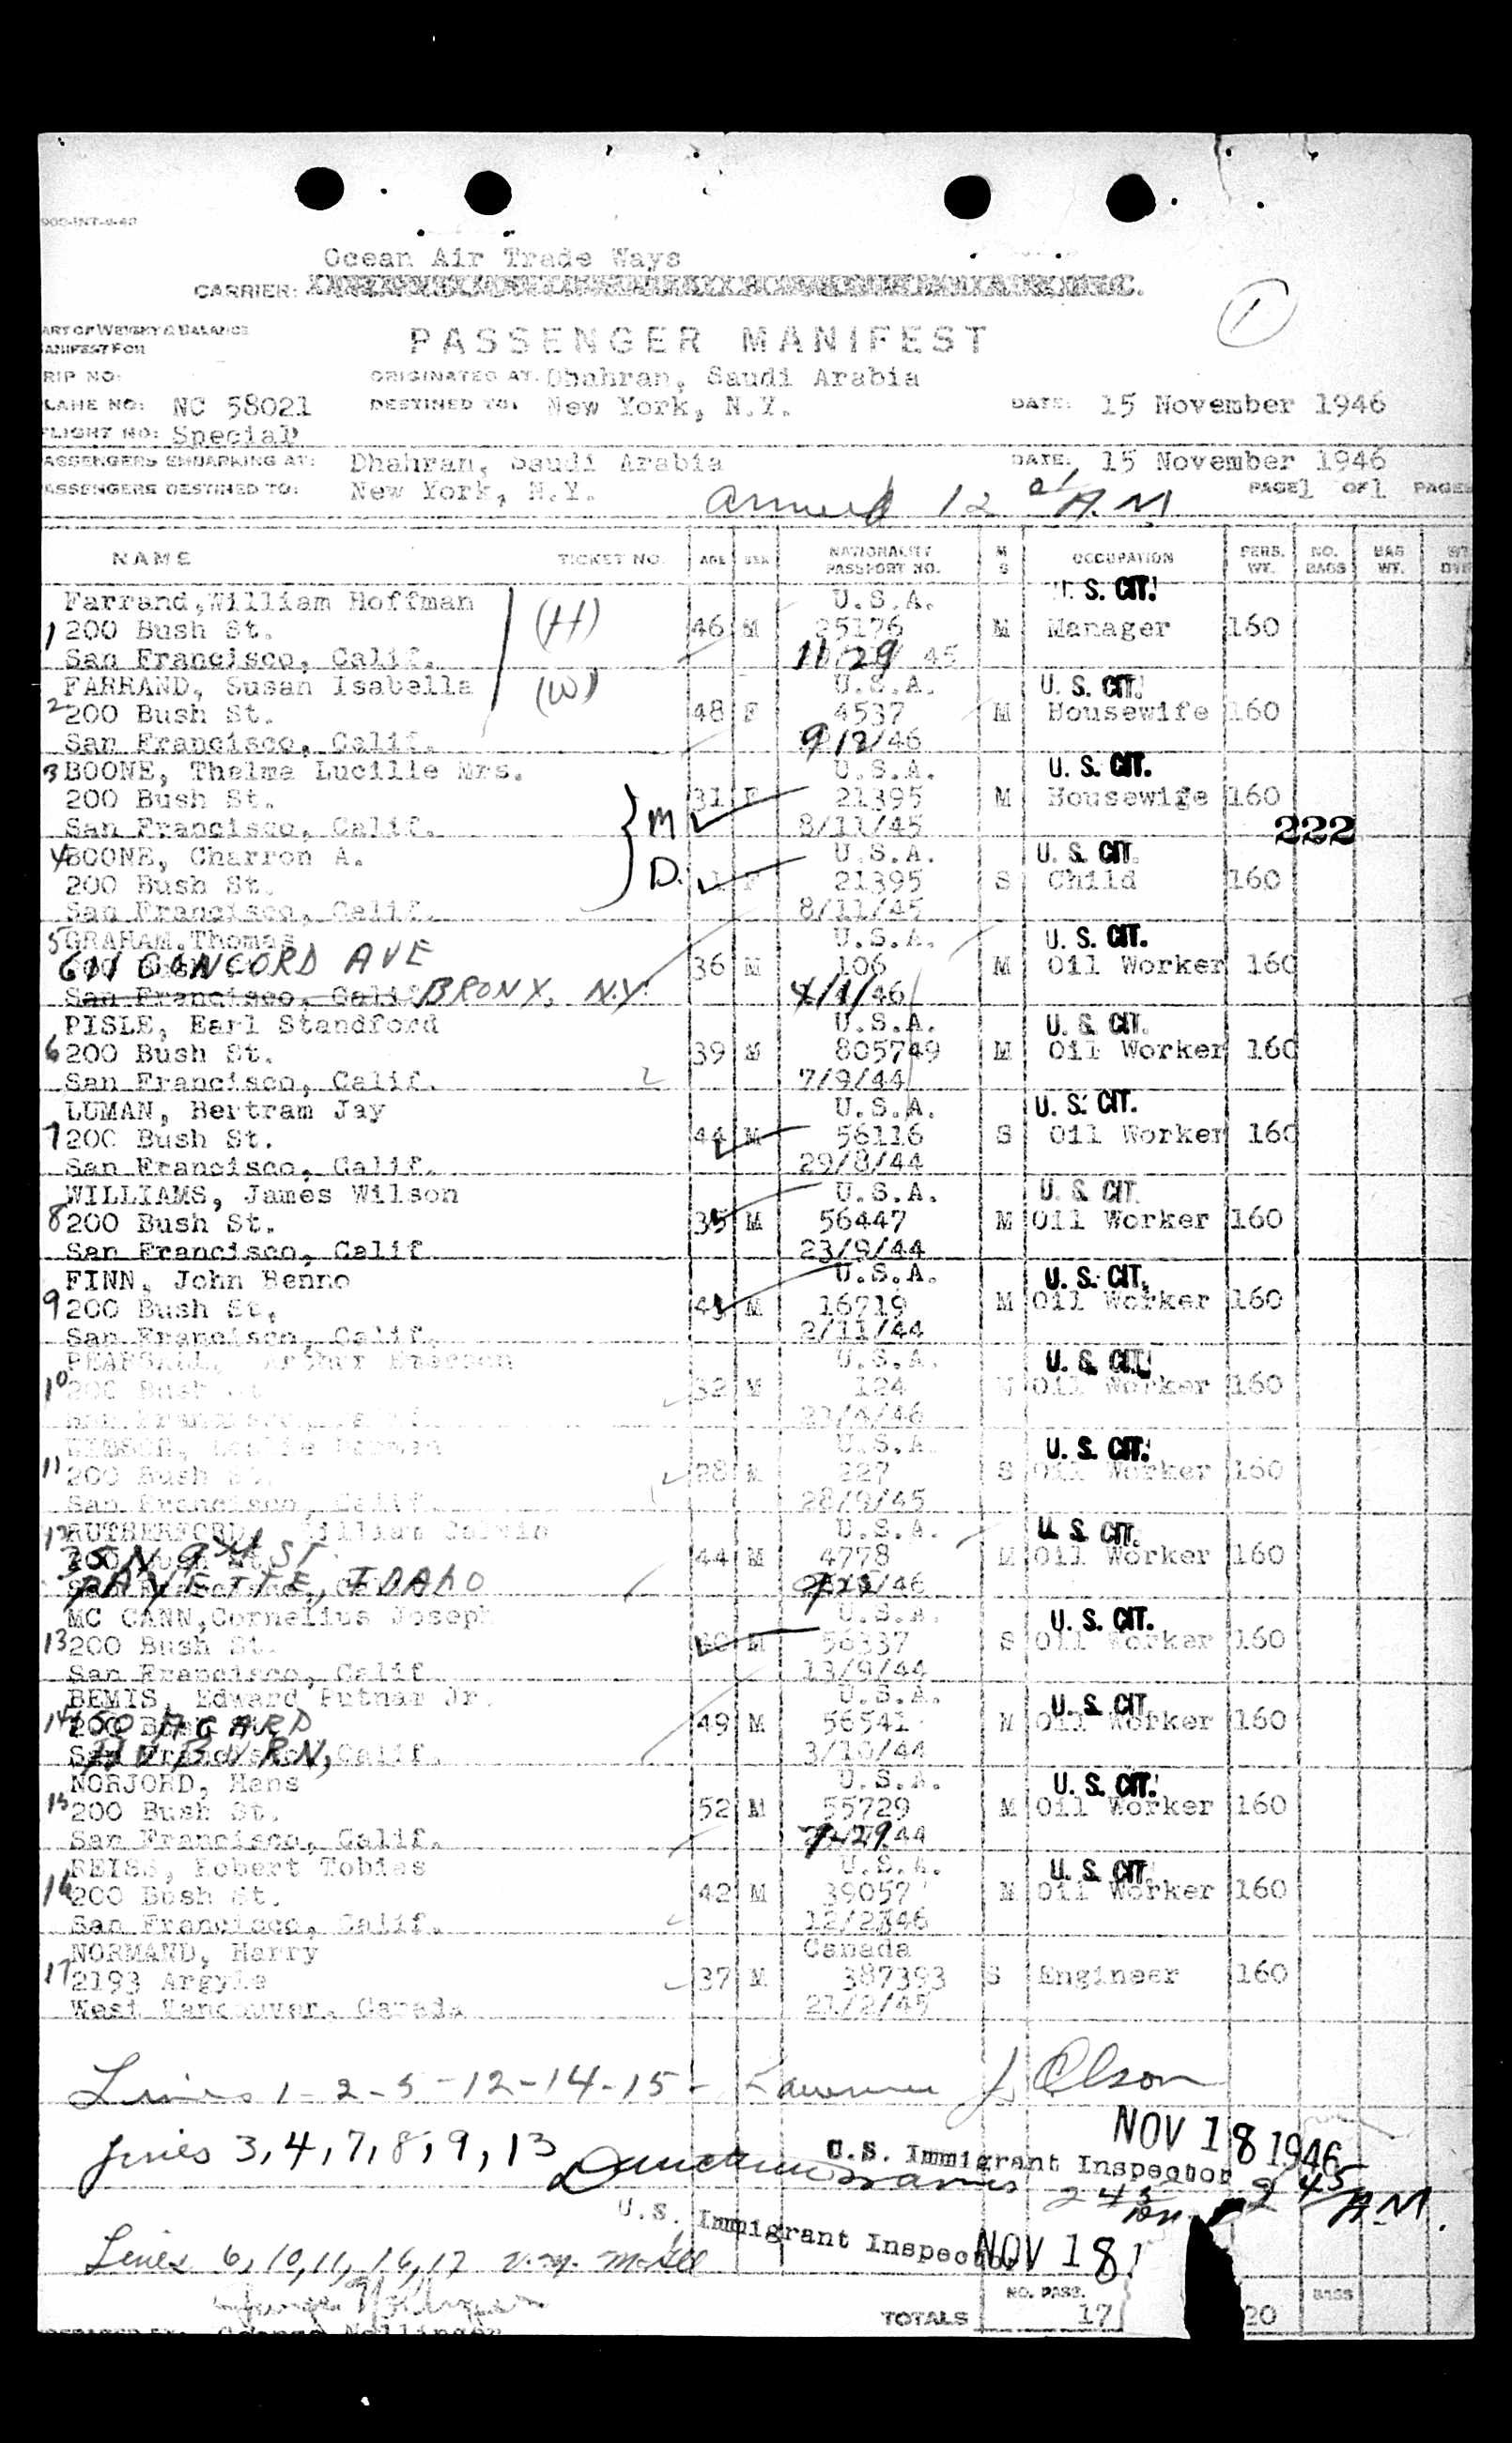 Ocean Air Trade Ways
CARRIER:
PASSENGER MANIFEST
1
ORIGINATED AT: Dhahran, Saudi Arabia
PLANE NO: NC 58021 DESTINED TO: New York, N.Y. DATE: 15 November 1946
FLIGHT NO: Special
PASSENGERS EMBARKING AT: Dhahran, Saudi Arabia DATE: 15 November 1946
PASSENGERS DESTINED TO: New York, N.Y. PAGE 1 OF 1 PAGES
Arrived 12 01 A.M
NAME TICKET NO. AGE SEX NATIONALITY PASSPORT NO. M S OCCUPATION PERS. WT. NO. BAGS BAG WT.
Farrand, William Hoffman (H) U.S.A. U. S. CIT.
1 200 Bush St. 46 M 25176 M Manager 160
San Francisco, Calif. 11/29 45
FARRAND, Susan Isabella (W) U.S.A. U. S. CIT.
2 200 Bush St. 48 F 4537 M Housewife 160
San Francisco, Calif. 9/12/46
3 BOONE, Thelma Lucille Mrs. U.S.A. U. S. CIT.
200 Bush St. M 31 F 21395 M Housewife 160
San Francisco, Calif. 8/11/45
222
4 BOONE, Charron A. U.S.A. U. S. CIT.
200 Bush St. D. 1 F 21395 S Child 160
San Francisco, Calif. 8/11/45
5 GRAHAM, Thomas U.S.A. U. S. CIT.
611 CONCORD AVE 36 M 106 M Oil Worker 160
San Francisco, Calif BRONX, N.Y. 4/1/46
PISLE, Earl Standford U.S.A. U. S. CIT.
6 200 Bush St. 39 M 805749 M Oil Worker 160
San Francisco, Calif. 7/9/44
LUMAN, Bertram Jay U.S.A. U. S. CIT.
7 200 Bush St. 44 M 56116 S Oil Worker 160
San Francisco, Calif. 29/8/44
WILLIAMS, James Wilson U.S.A. U. S. CIT.
8 200 Bush St. 35 M 56447 M Oil Worker 160
San Francisco, Calif 23/9/44
FINN, John Benno U.S.A. U. S. CIT.
9 200 Bush St. M 16719 M Oil Worker 160
San Francisco, Calif. 2/11/44
PEARSALL, Arthur Emerson U.S.A. U. S. CIT.
10 200 Bush St 32 M 124 M Oil Worker 160
San Francisco, Calif. 46
U.S.A. U. S. CIT.
11 200 Bush St. 28 M 227 S Oil Worker 160
San Francisco, Calif. 28/9/45
12 RUTHERFORD, William U.S.A. U. S. CIT.
35 N 9th ST. 44 M 4778 M Oil Worker 160
PAYETTE, IDAHO /46
MC CANN, Cornelius Joseph U.S.A. U. S. CIT.
13 200 Bush St. M 56337 S Oil Worker 160
San Francisco, Calif 13/9/44
BEMIS, Edward Putnar Jr. U.S.A. U. S. CIT.
14 200 49 M 56541 M Oil Worker 160
AUBURN, Calif. 3/10/44
NORJORD, Hans U.S.A. U. S. CIT.
15 200 Bush St. 52 M 55729 M Oil Worker 160
San Francisco, Calif. 44
REISS, Robert Tobias U.S.A. U. S. CIT.
16 200 Bush St. 42 M 39057 M Oil Worker 160
San Francisco, Calif. 12/2/46
NORMAND, Harry Canada
17 2193 Argyle 37 M 387393 S Engineer 160
West Vancouver, Canada 21/2/45
Lines 1-2-5-12-14-15- Lawrence J. Olson
NOV 18 1946
Lines 3, 4, 7, 8, 9, 13 U.S. Immigrant Inspector
2 45 AM.
U.S. Immigrant Inspector NOV 18
Lines 6, 10, 11, 16, 17
NO. PASS. BAGS
TOTALS 17 20